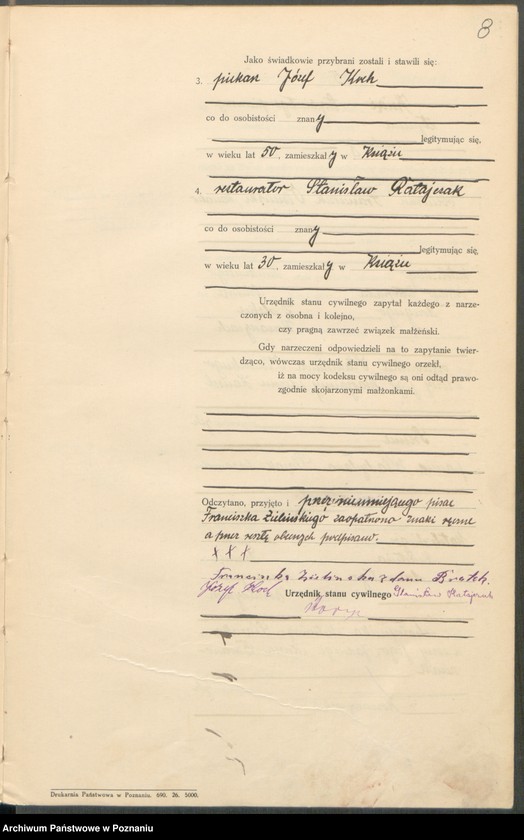 8
Jako świadkowie przybrani zostali i stawili się:
3. piekarz Józef Koch
co do osobistości znany
legitymując się,
w wieku lat 50, zamieszkały w Książu
4. restaurator Stanisław Ratajczak
co do osobistości znany
legitymując się,
w wieku lat 30, zamieszkały w Książu
Urzędnik stanu cywilnego zapytał każdego z narze-
czonych z osobna i kolejno,
czy pragną zawrzeć związek małżeński.
Gdy narzeczeni odpowiedzieli na to zapytanie twier-
dząco, wówczas urzędnik stanu cywilnego orzekł,
iż na mocy kodeksu cywilnego są oni odtąd prawo-
zgodnie skojarzonymi małżonkami.
Odczytano, przyjęto i przez nieumiejącego pisać
Franciszka Zielińskiego zaopatrzono znaki ręczne
a przez resztę obecnych podpisano.
+ + +
Franciszka Zielińska z domu
Józef Koch Urzędnik stanu cywilnego Stanisław Ratajczak
Drukarnia Państwowa w Poznaniu. 690. 26. 5000.
Archiwum Państwowe w Poznaniu